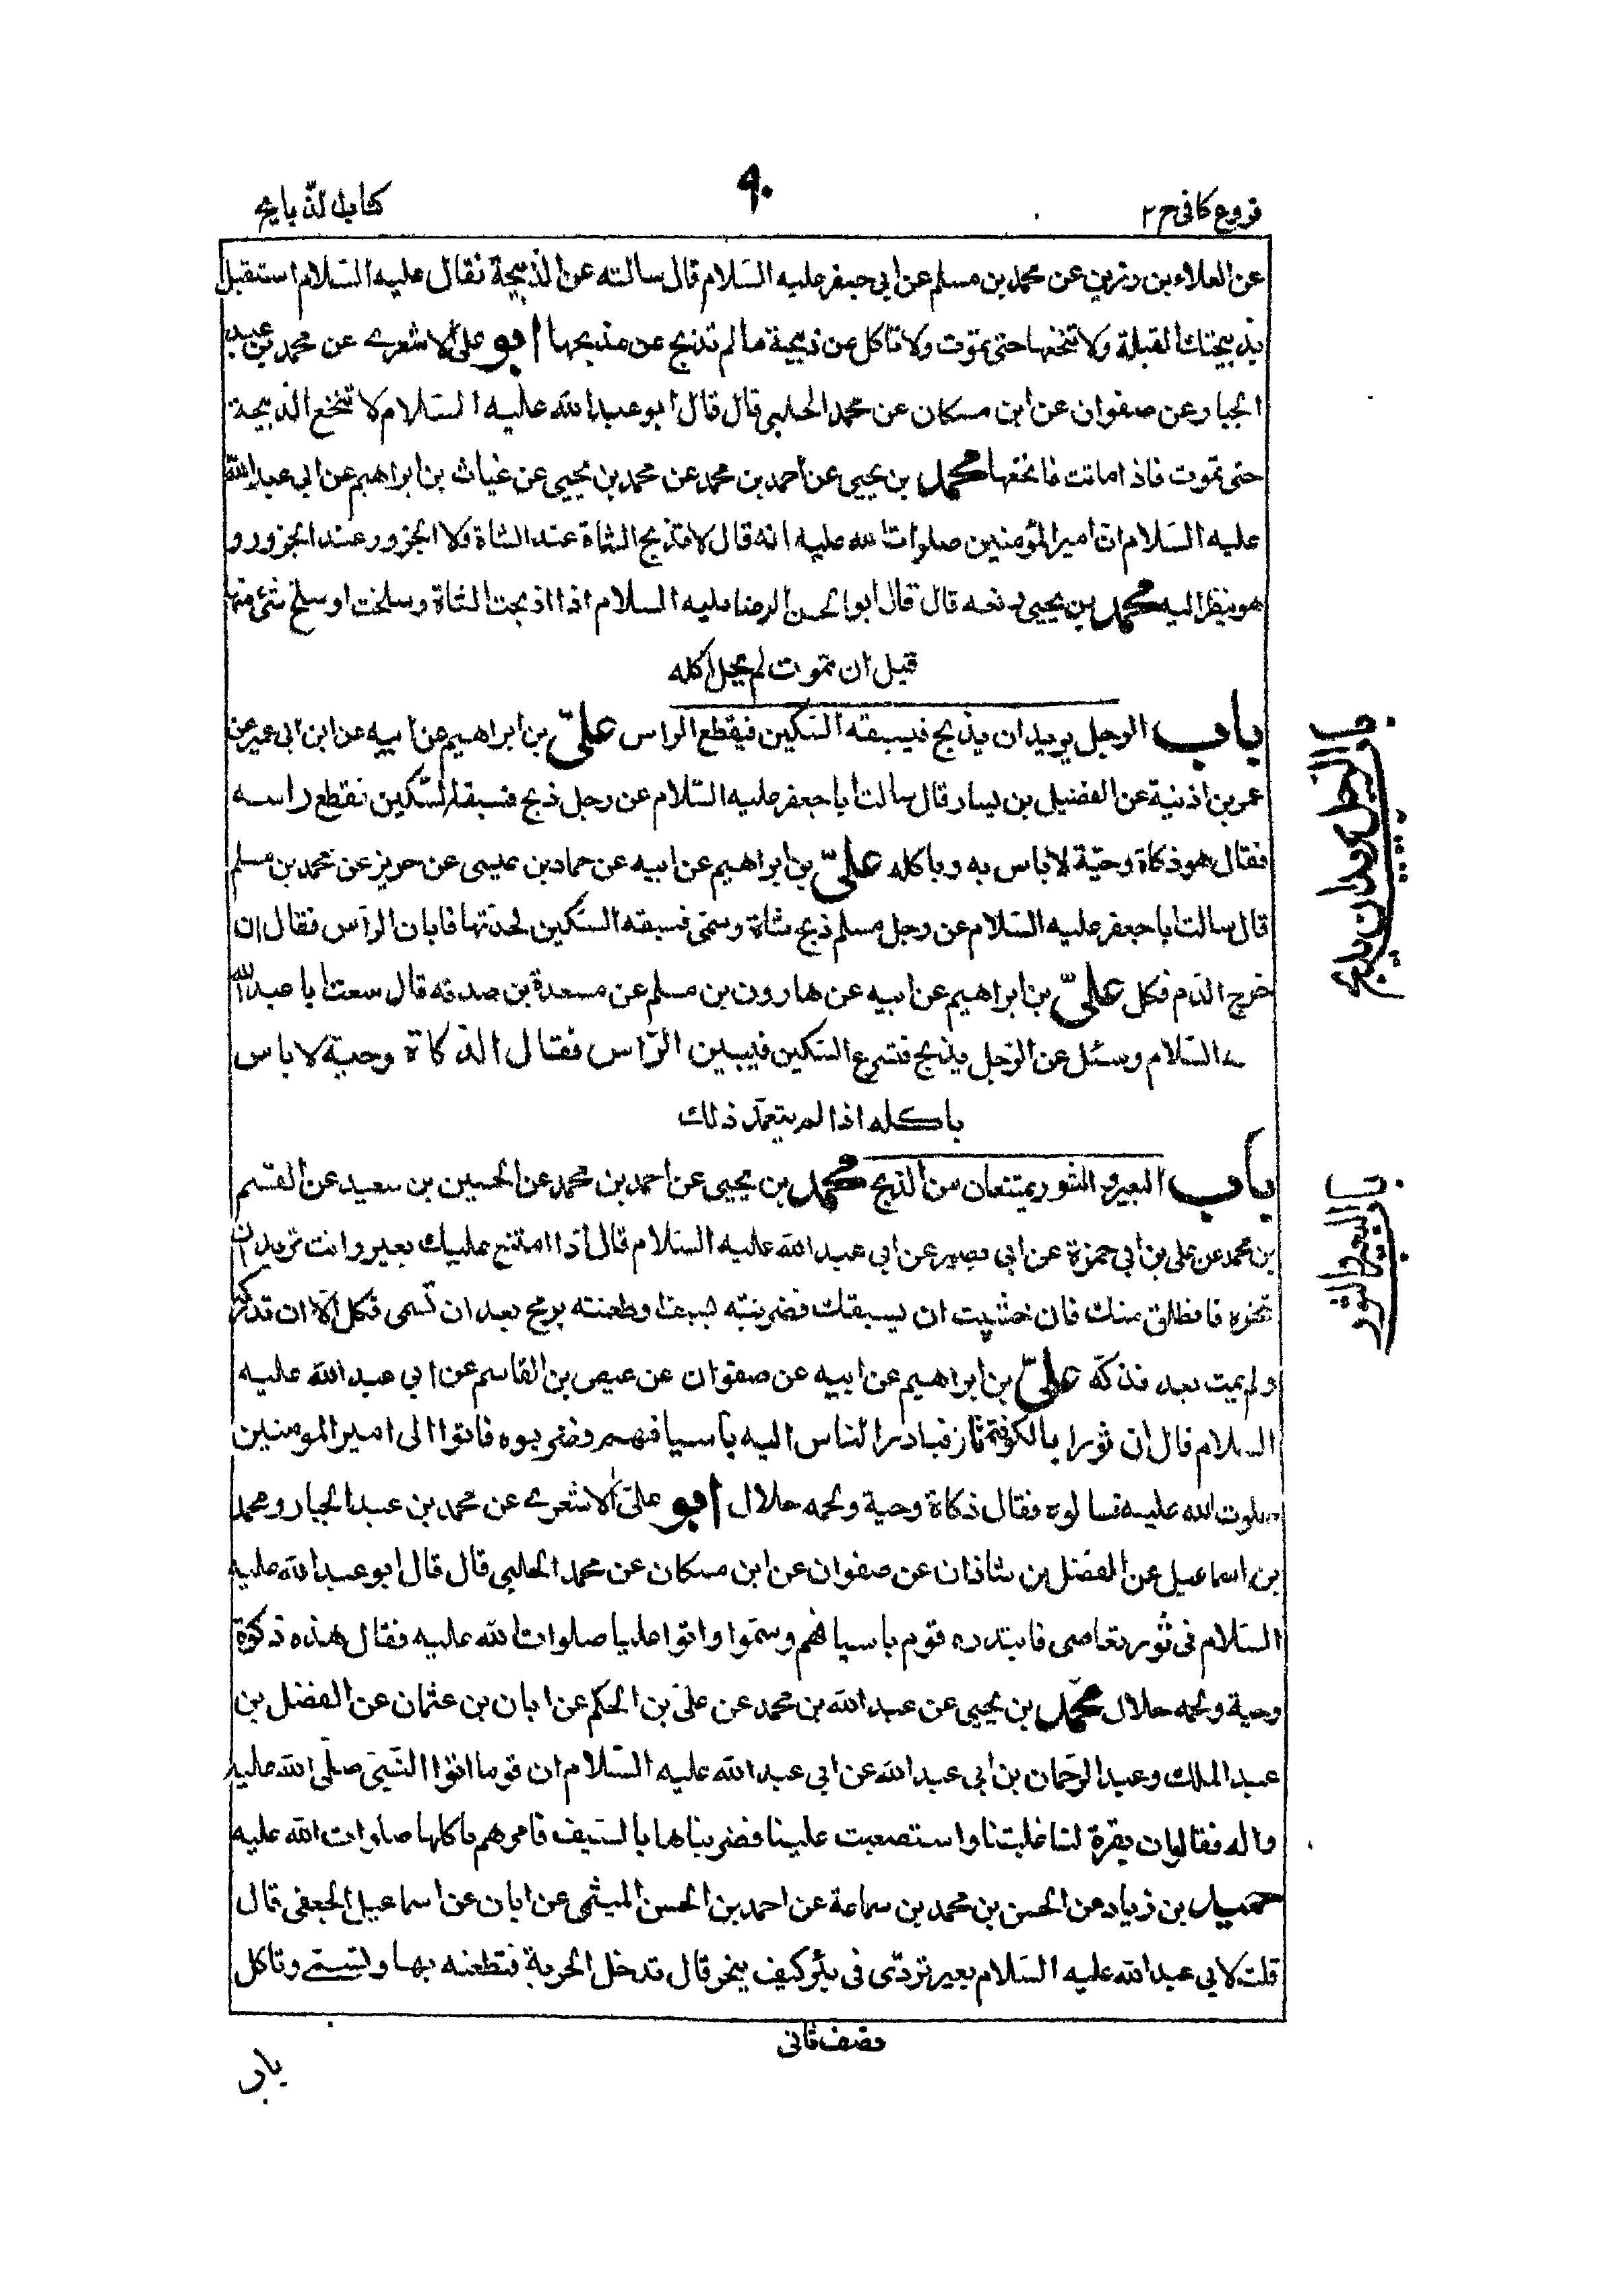 فروع كافى ج ٢
٩٠
كتاب الذبايح
عن العلاء بن رزين عن محمد بن مسلم عن ابي جعفر عليه السّلام قال سالته عن الذبيحة فقال عليه السّلام استقبل
بذبيحتك القبلة ولا تنخعها حتى تموت ولا تاكل من ذبيحة ما لم تذبح من مذبحها ابو علي الاشعرے عن محمد بن عبد
الجبار عن صفوان عن ابن مسكان عن محمد الحلبي قال قال ابو عبد الله عليه السّلام لا تنخع الذبيحة
حتى تموت فاذا ماتت فانخعها محمد بن يحيى عن احمد بن محمد عن محمد بن يحيى عن غياث بن ابراهيم عن ابي عبد الله
عليه السّلام ان امير المؤمنين صلوات الله عليه انه قال لا تذبح الشاة عند الشاة ولا الجزور عند الجزور و
هو ينظر اليه محمد بن يحيى رفعه قال قال ابو الحسن الرضا عليه السلام اذا اذبحت الشاة وسلخت او سلخ شئ منها
قبل ان تموت لم يحل اكله
باب الرجل يريد ان يذبح فيسبقه السّكين فيقطع الراس عليّ بن ابراهيم عن ابيه عن ابن ابي عمير عن
عمر بن اذنية عن الفضيل بن يسار قال سالت ابا جعفر عليه السّلام عن رجل ذبح فتسبقه السّكين فقطع راسه
فقال هو ذكاة وحيّة لا باس به وباكله عليّ بن ابراهيم عن ابيه عن حماد بن عيسى عن حريز عن محمد بن مسلم
قال سالت ابا جعفر عليه السّلام عن رجل مسلم ذبح شاة وسمّى فسبقه السّكين لحدّتها فابان الرّاس فقال ان
خرج الدّم فكل عليّ بن ابراهيم عن ابيه عن هارون بن مسلم عن مسعدة بن صدقه قال سمعت ابا عبد الله
ے السّلام وسئل عن الرّجل يذبح فتسرع السّكين فيبين الرّاس فقال الذكاة وحيّة لا باس
باكله اذا لم يتعمّد ذلك
باب البعير و الثور يمتنعان من الذبح محمد بن يحيى عن احمد بن محمد عن الحسين بن سعيد عن القسم
بن محمد عن علي بن ابي حمزة عن ابي بصير عن ابي عبد الله عليه السّلام قال اذا امتنع عليك بعير وانت تريد ان
تنحره فانطلق منك فان خشيت ان يسبقك فضربته بسيف او طعنته برمح بعد ان تسمى فكل الّا ان تدركه
ولم يمت بعد فذكّه عليّ بن ابراهيم عن ابيه عن صفوان عن عيص بن القاسم عن ابي عبد الله عليه
السلام قال ان ثورا بالكوفة ثار فبادر الناس اليه باسيافهم وضربوه فاتوا الى امير المومنين
صلوت الله عليه فسالوه فقال ذكاة وحية ولحمه حلال ابو علىّ الاشعرے عن محمد بن عبد الجبار ومحمد
بن اسماعيل عن الفضل بن شاذان عن صفوان عن ابن مسكان عن محمد الحلبي قال قال ابو عبد الله عليه
السّلام في ثور تعاصى فابتدره قوم باسيافهم وسمّوا واتوا عليا صلوات الله عليه فقال هذه ذكوة
وحية ولحمه حلال محمّد بن يحيى عن عبد الله بن محمد عن عليّ بن الحكم عن ابان بن عثمان عن الفضل بن
عبد الملك وعبد الرّحمان بن ابي عبد الله عن ابي عبد الله عليه السّلام ان قوما اتوا النّبيّ صلّى الله عليه
واله فقالوا ان بقرة لنا غلبتنا واستصعبت علينا فضربناها بالسّيف فامرهم باكلها صلوات الله عليه
حميد بن زياد عن الحسن بن محمد بن سماعة عن احمد بن الحسن الميثمي عن ابان عن اسماعيل الجعفي قال
قلت لابي عبد الله عليه السّلام بعير تردّى في بئر كيف ينحر قال تدخل الحربة فتطعنه بها وتسمّے وتاكل
نصف ثاني
باب
باب الرجل يريد ان يذبح
باب البعير والثور